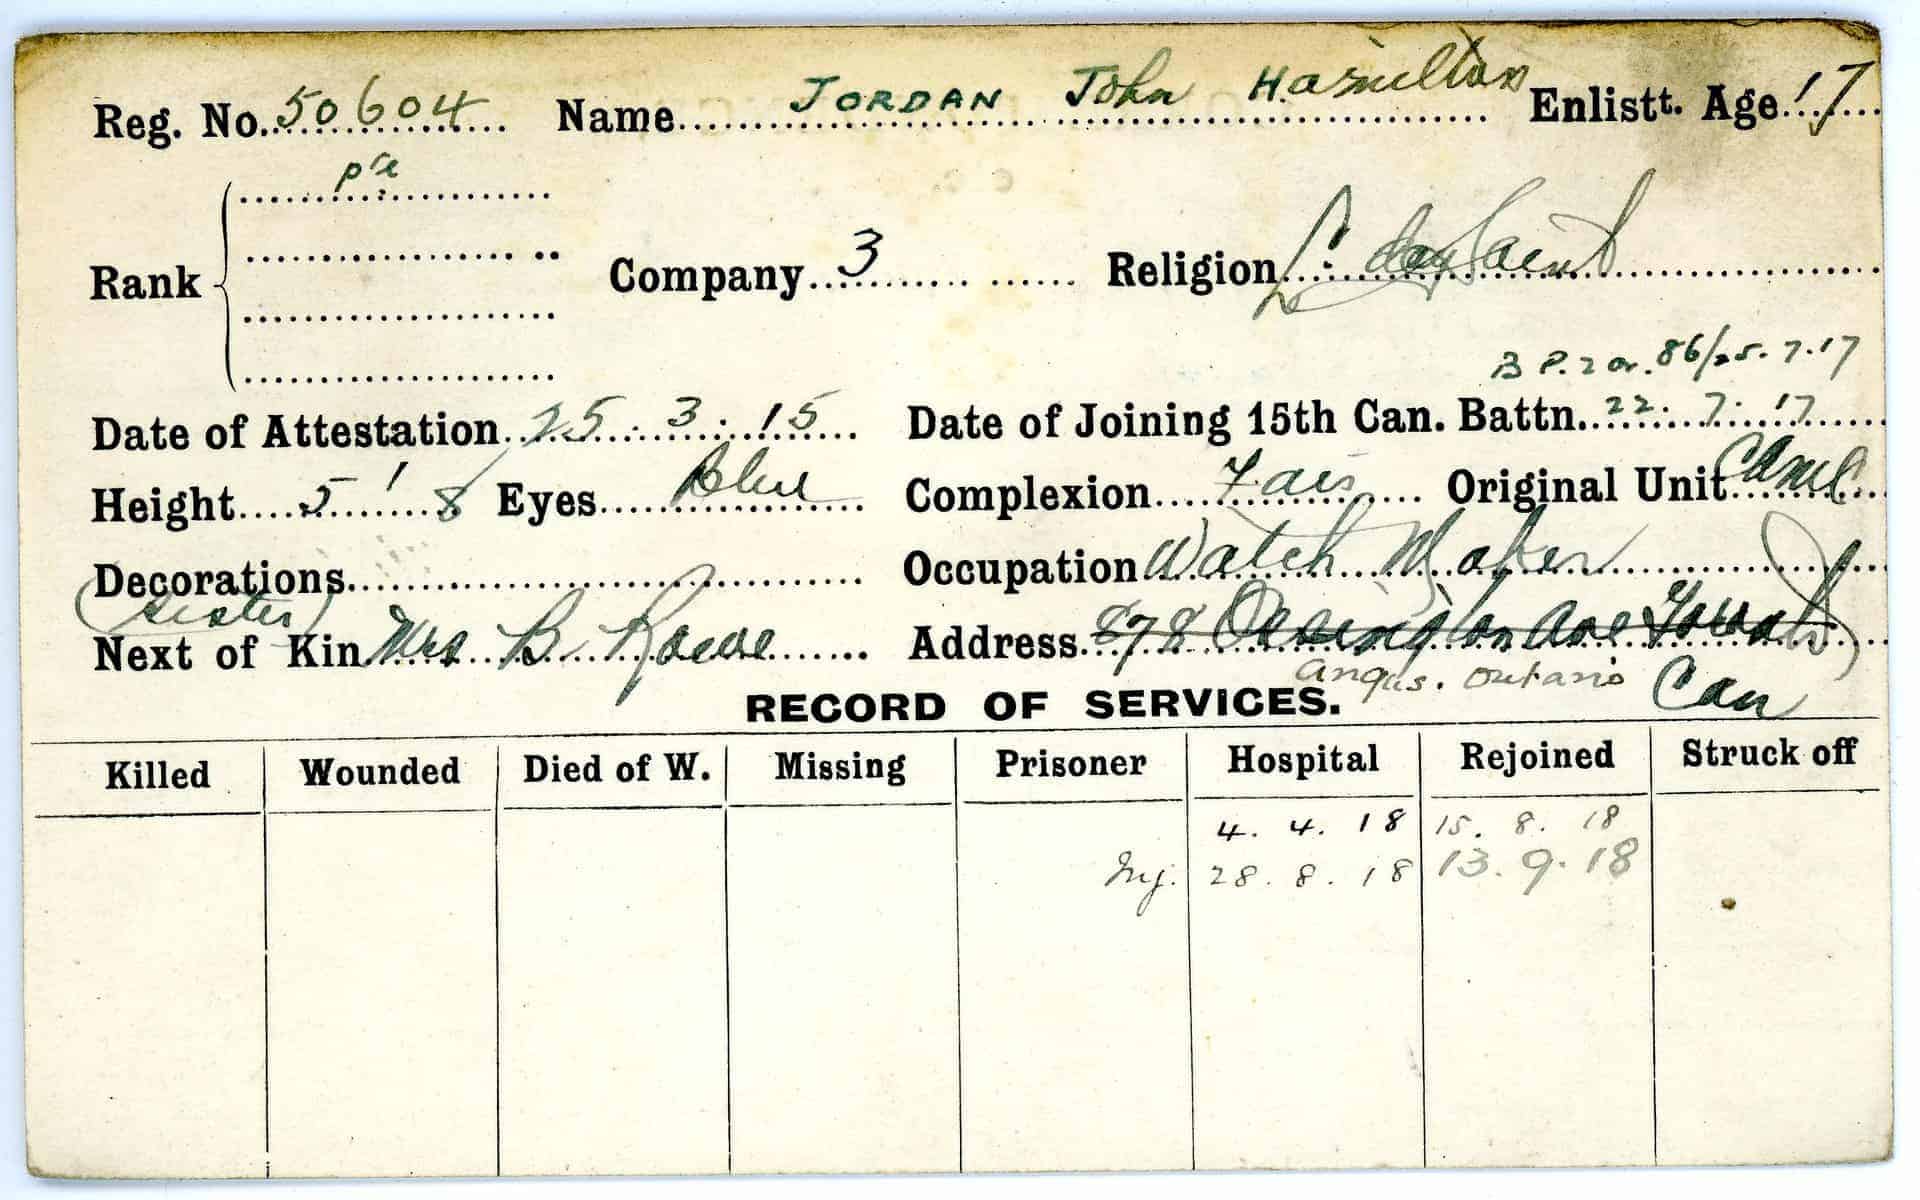 Reg. No. 50604 Name JORDAN John Hamilton Enlistt. Age 17
Rank Pte
Company 3 Religion L. day Saint
B P. 2 Or. 86/25.7.17
Date of Attestation 25.3.15 Date of Joining 15th Can. Battn. 22.7.17
Height 5' 8 Eyes Blue Complexion Fair Original Unit CAMC
Decorations Occupation Watch Maker
(Sister)
Next of Kin Mrs B Rowe Address 878 Ossington Ave Toronto
Angus. Ontario Can
RECORD OF SERVICES.
Killed Wounded Died of W. Missing Prisoner Hospital Rejoined Struck off
4. 4. 18 15. 8. 18
Inj. 28. 8. 18 13. 9. 18